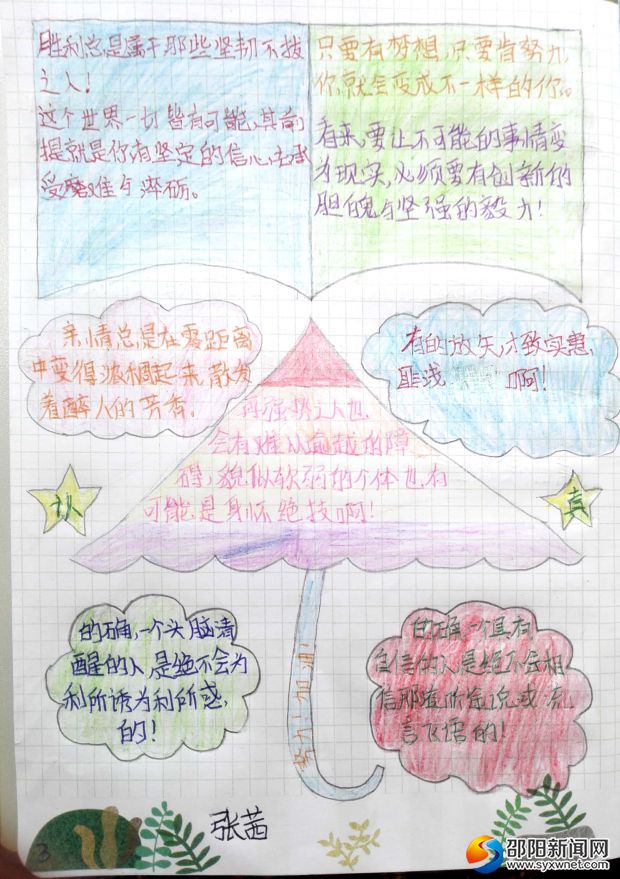 胜利总是属于那些坚韧不拔
之人!
这个世界一切皆有可能,其前
提就是你有坚定的信心,去承
受磨难与淬砺。
只要有梦想,只要肯努力,
你,就会变成不一样的你。
看来,要让不可能的事情变
为现实,必须要有创新的
胆魄与坚强的毅力!
亲情总是在零距离
中变得浓稠起来,散发
着醉人的芳香。
有的放矢,才致实惠,
匪浅 啊!
再强势之人也
会有难以逾越的障
碍,貌似软弱的个体也有
可能是身怀绝技啊!
认
真
的确,一个头脑清
醒的人是绝不会为
利所诱为利所惑
的!
的确,一个真有
自信的人是绝不会相
信那道听途说或流
言飞语的!
努力!加油!
张茜
3
邵阳新闻网
www.syxwnet.com